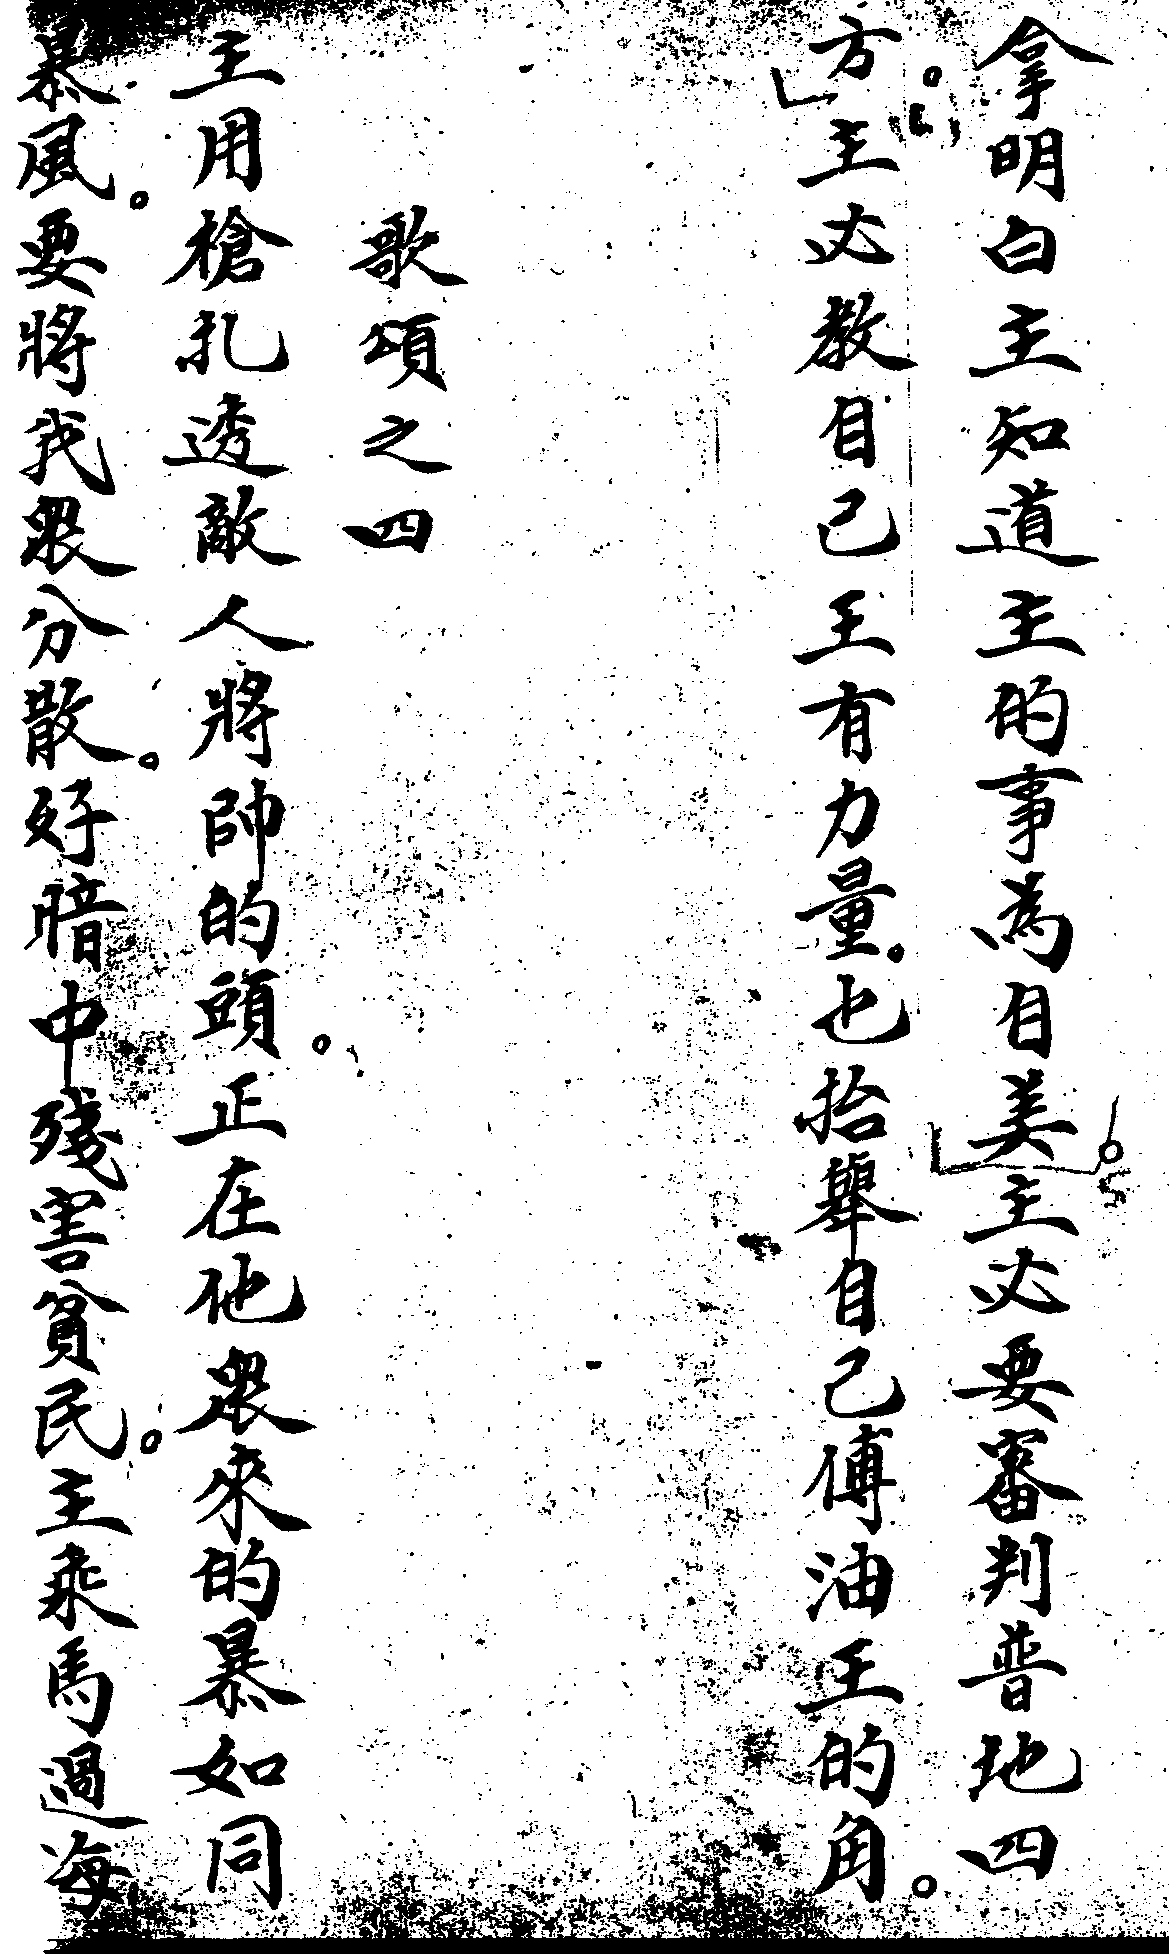 拿明白主知道主的事為自美主必要審判普地四
方主必教自己王有力量。也抬舉自己傅油王的角。
歌頌之四
主用槍扎透敵人將帥的頭。正在他眾來的暴如同
暴風。要將我眾分散。好暗中殘害貧民。主乘馬過海